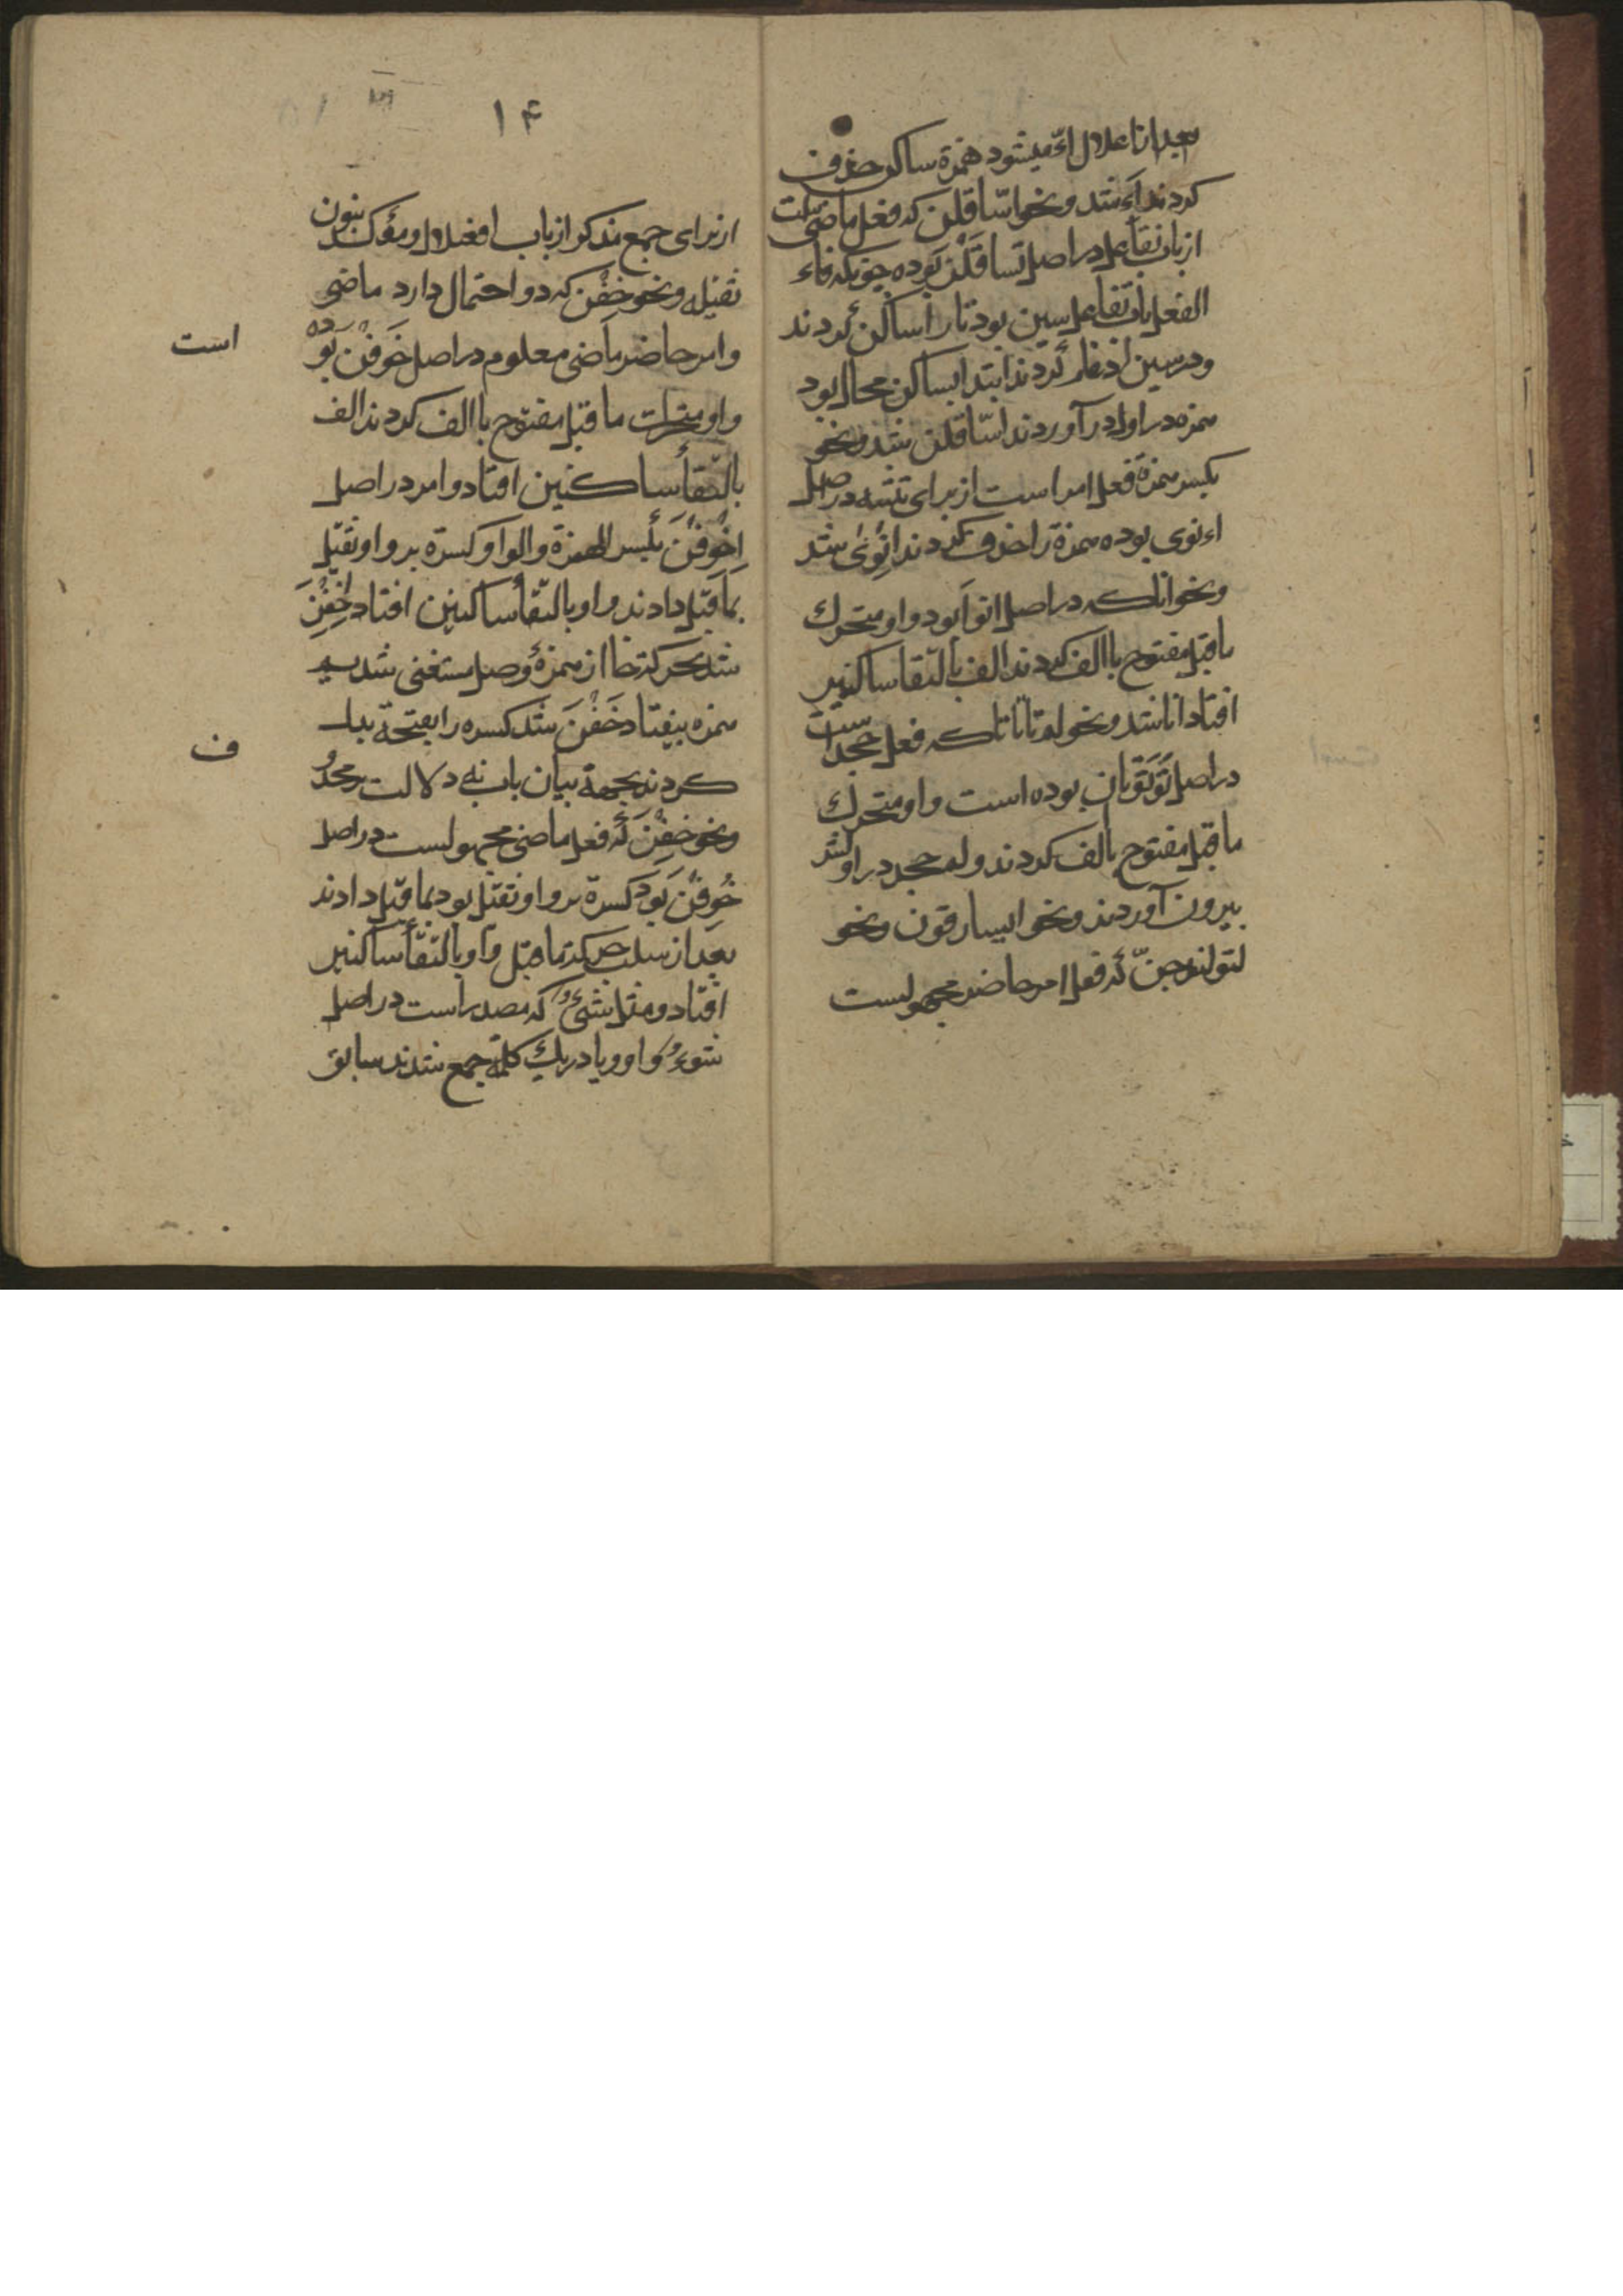 بعد از اعلال اء میشود همزة ساکن حذف
کردند اء شد و نحو اسّاقلن که فعل ماضی است
از باب تفاعل در اصل تساقلن بوده چونکه فاء
الفعل باب تفاعل سین بود تا را ساکن کردند
و در سین ادغام کردند ابتدا بساکن محال بود
همزه در اول در آوردند اسّاقلن شد و نحو
بکسر همزة فعل امر است از برای تثنیه در اصل
اءنوی بوده همزة را حذف کردند انوی شد
و نحو انا که در اصل انوا بود واو متحرك
ماقبل مفتوح باالف کردند الف بالتقا ساکنین
افتاد انا شد و نحو لم تاتاتا که فعل جحد است
در اصل بوده است واو متحرك
ماقبل مفتوح بالف کردند و لم جحد در اولش
بیرون آوردند و نحو ایسارقون و نحو
که فعل امر حاضر مجهولست
۱۴
از برای جمع مذکر از باب افعلال و مؤکد بنون
ثقیله و نحو خِفْن که دو احتمال دارد ماضی
و امر حاضر ماضی معلوم در اصل خَوِفْنَ بوده
است
واو متحرك ما قبل مفتوح باالف کردند الف
بالتّقأ ساکنین افتاد و امر در اصل
اِخْوِفْنَ بکسر الهمزة والواو کسرة بر واو ثقیل
بماقبل دادند واو بالتّقأ ساکنین افتاد اِخِفْنَ
شد بحرکة خا از همزهٔ وصل مستغنی شد
همزه بیفتاد خَفْنَ شد کسره را بفتحة بدل
کردند بجهة بیان باب نه دلالت بر محذو
ف
و نحو خِفْنَ که فعل ماضی مجهولست در اصل
خُوِفْنَ بود کسرة بر واو ثقیل بود بما قبل دادند
بعد از سلب حرکة ماقبل واو بالتقأ ساکنین
افتاد و مثل شیء که مصدر است در اصل
شوء واو و یا در یك کلمة جمع شدند سابق